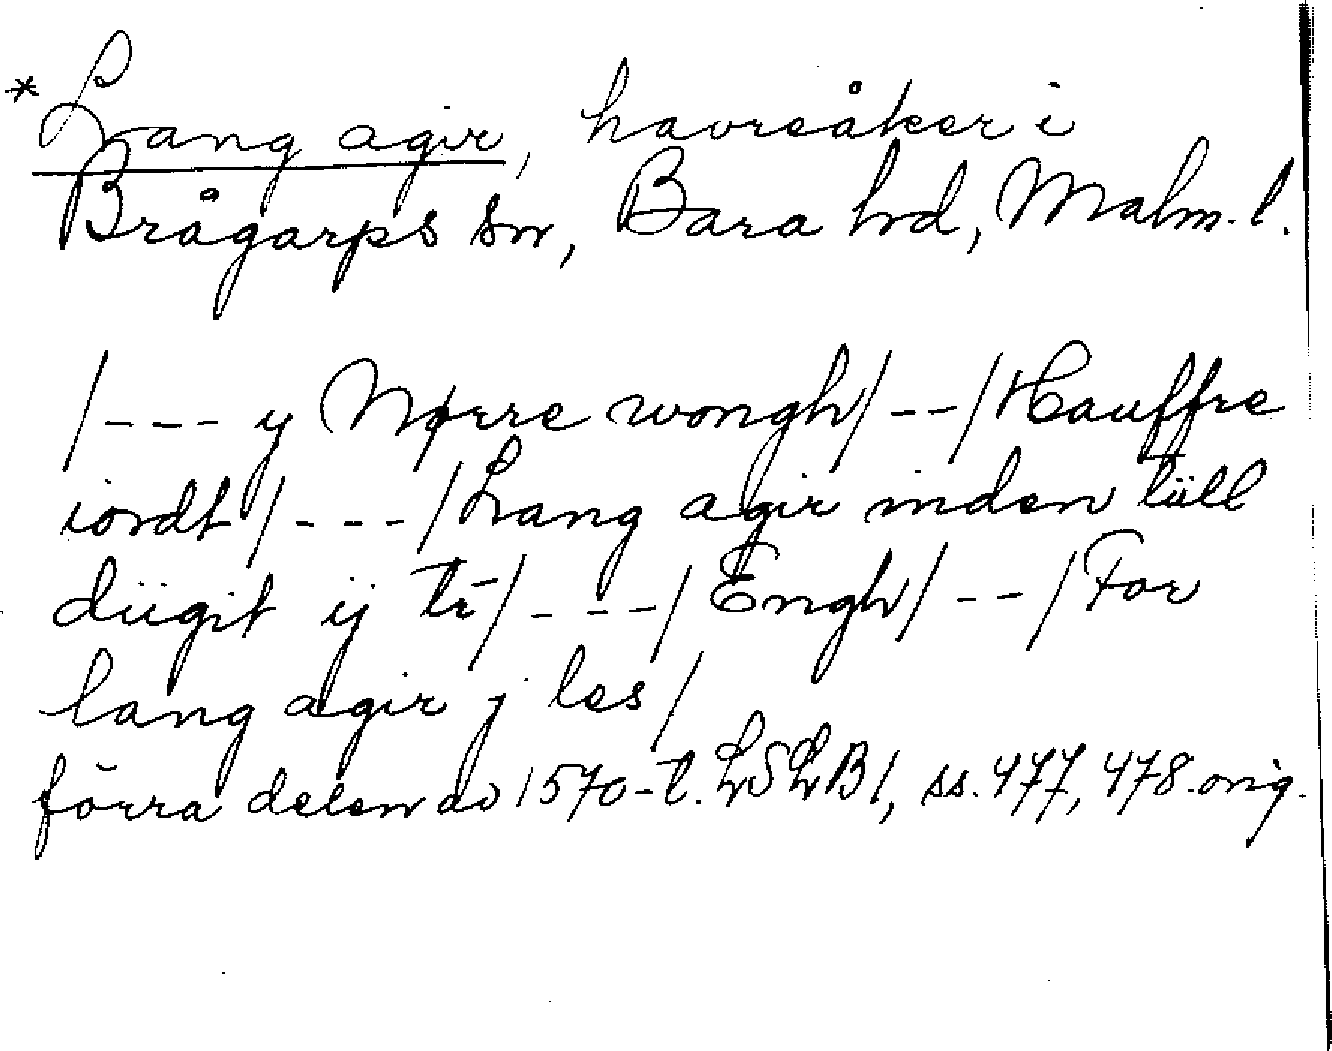 *Lang agir, havreåker i
Brågarps sn, Bara hd, Malm. l.
/--- y Nørre wongh/--/Hauffre
iordt/---/Lang agir inden tüll
düigit ij tr̄/---/Engh/--/For
lang agir j les/
förra delen av 1570-t. LSLB 1, ss. 477, 478. orig.